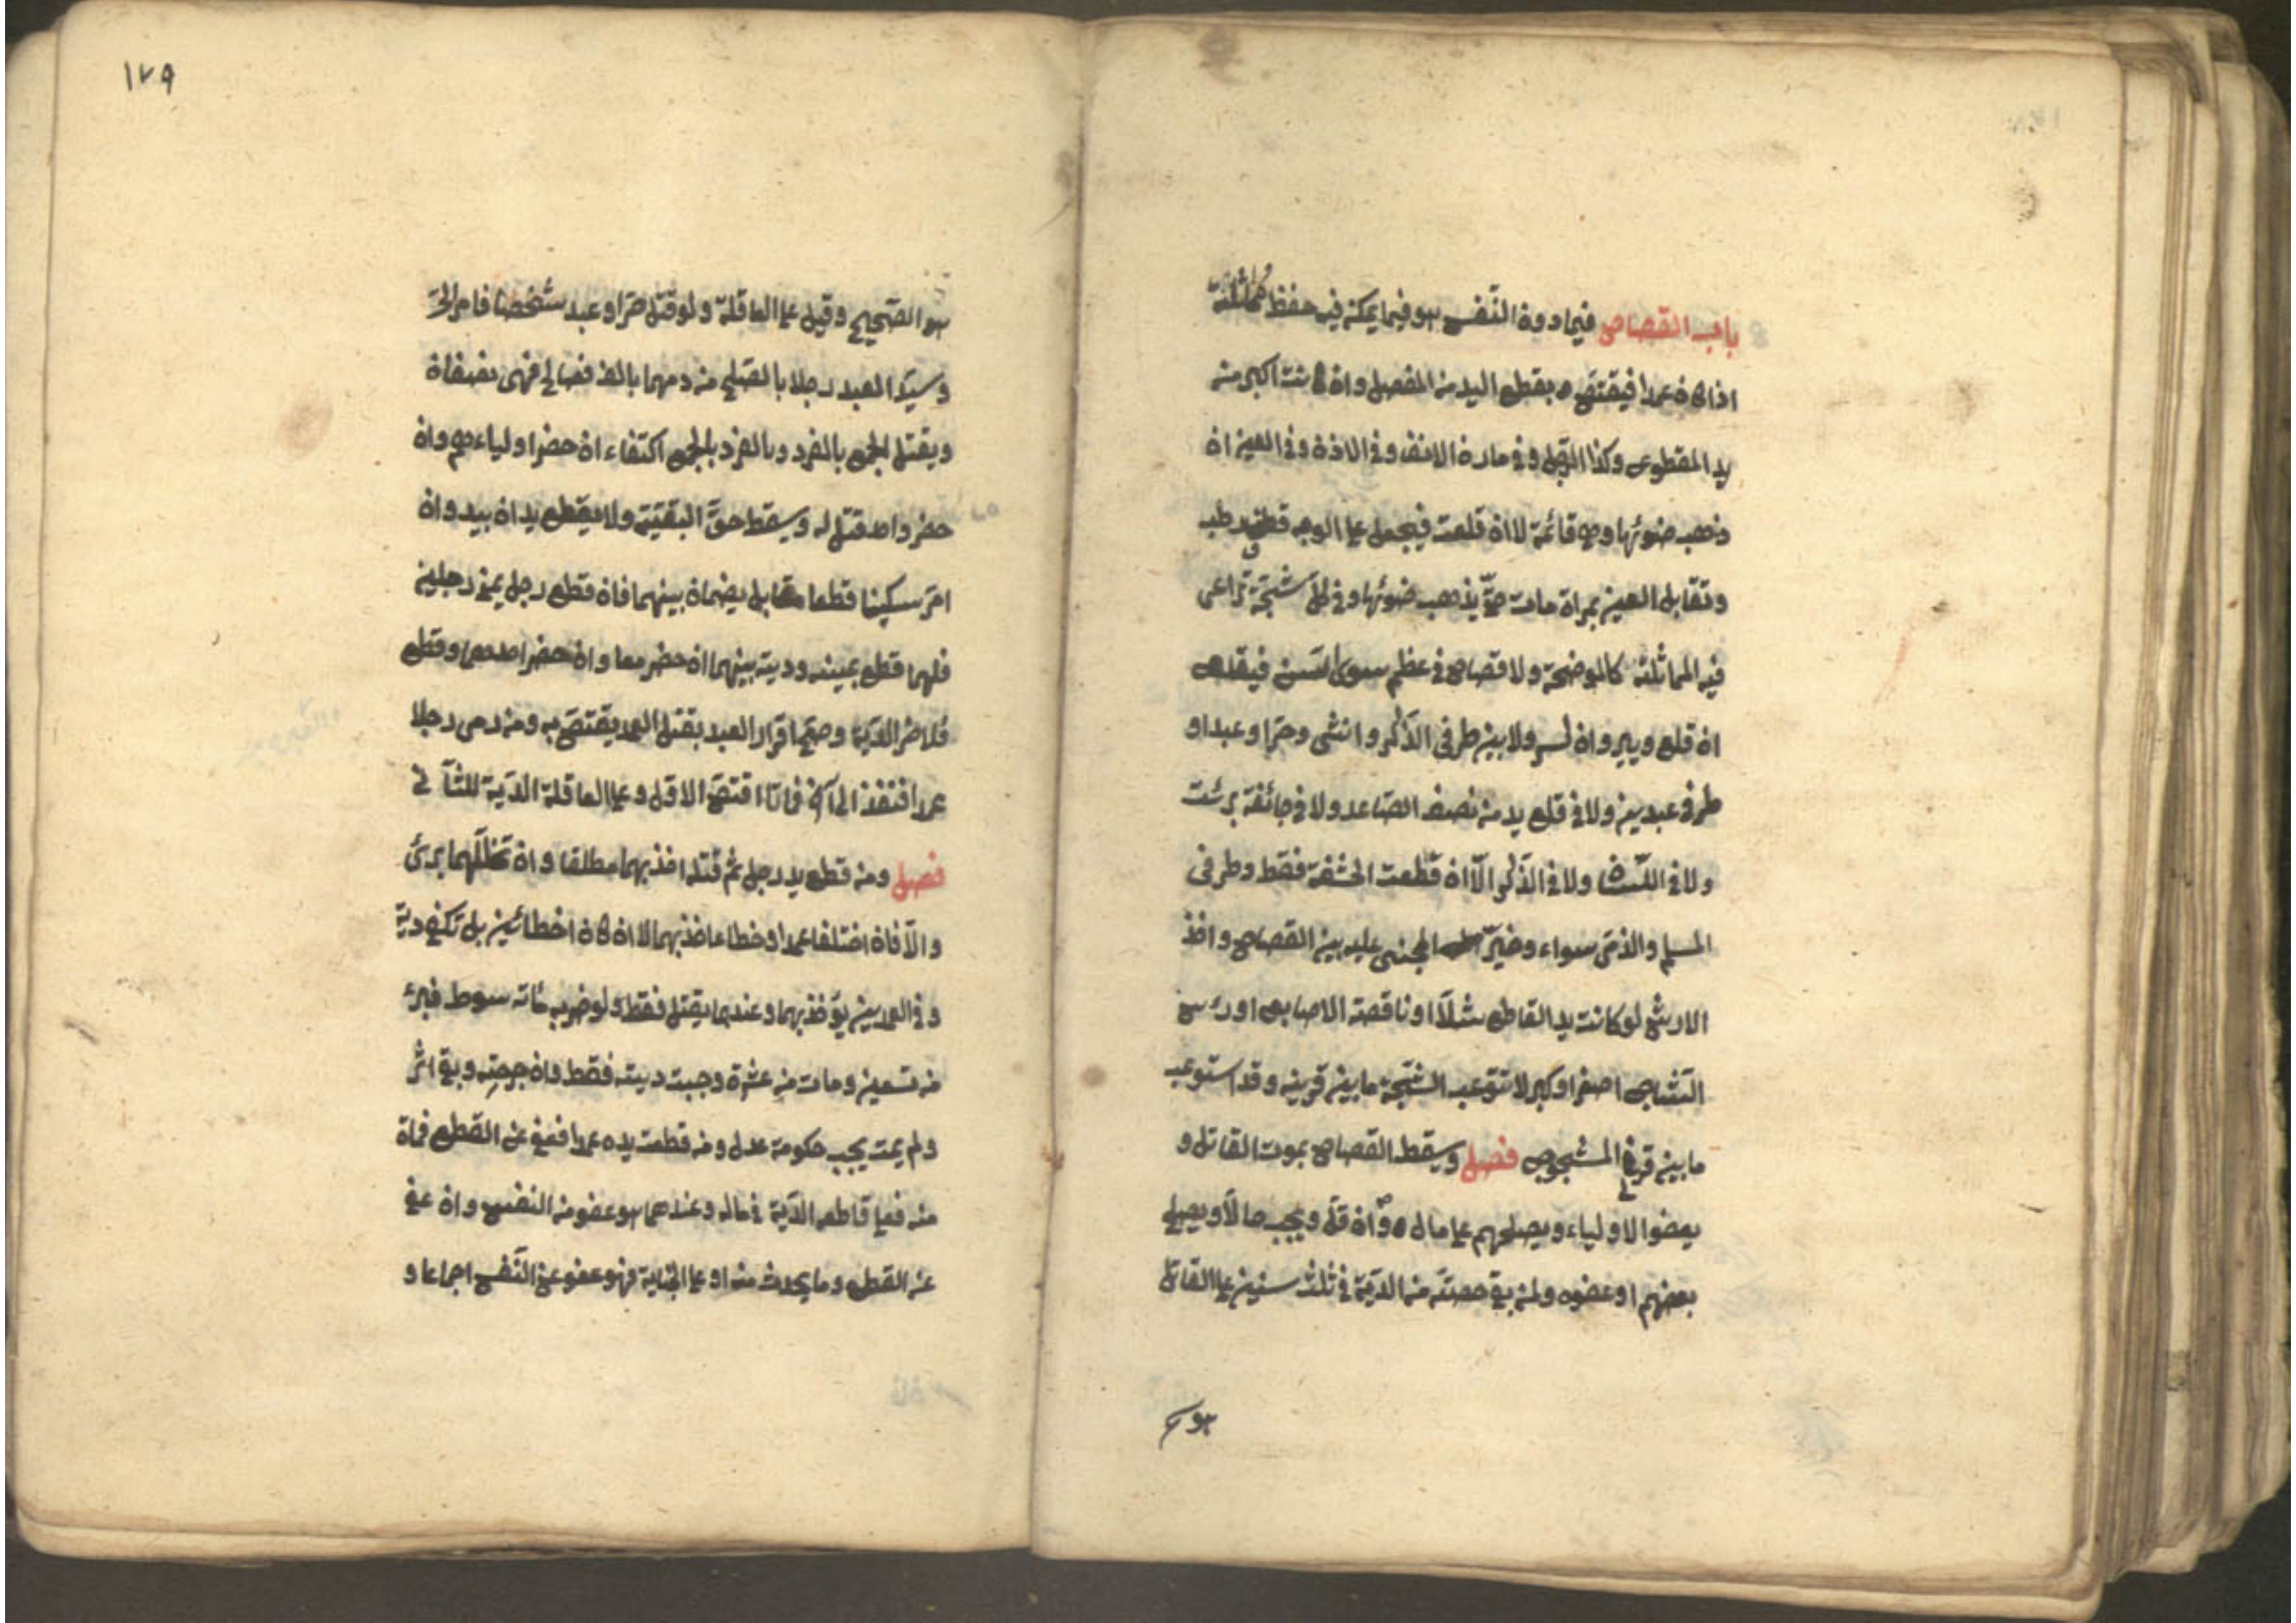 باب القصاص فيما دون النفس هو فيما يمكن فيه حفظ المماثلة
اذا كان عمدا فيقتص بقطع اليد من المفصل وان كانت اكبر من
يد المقطوع وكذا الرجل وفي مارن الانف وفي الاذن وفي العين ان
ذهب ضوئها وهي قائمة لا ان قلعت فيجعل على الوجه قطن رطب
وتقابل العين بمرآة حامت حتى يذهب ضوئها وفي كل شجة تراعى
فيه المماثلة كالموضحة ولا قصاص في عظم سوى السن فيقلع
ان قلع ويبرد ان كسر ولا بين طرفى الذكر وانثى وحر او عبد او
طرفى عبدين ولا في قلع يد من نصف الصاعد ولا في جائفة برئت
ولا في اللسان ولا في الذكر الّا ان قطعت الحشفة فقط وطرفى
المسلم والذمى سواء وخيّر المجنى عليه بين القصاص واخذ
الارش لو كانت يد القاطع شلّا او ناقصة الاصابع او رأس
الشاج اصغر او اكبر لا تستوعب الشجة ما بين قرنيه وقد استوعب
ما بين قرنى المشجوج فصل ويسقط القصاص بموت القاتل و
بعفو الاولياء وبصلحهم على مال وان قل ويجب حالّا وبصلح
بعضهم او عفوه ولمن بقى حصته من الدّية في ثلث سنين على القاتل
هو
١٧٩
هو الصّحيح وقيل على العاقلة ولو قتل حرّ وعبد شخصا فامر الحر
وسيّد العبد رجلا بالصلح من دمهما بالف فصالح فهى نصفان
ويقتل الجمع بالفرد وبالفرد بالجمع اكتفاء ان حضر اولياءهم وان
حضر واحد قتل له وسقط حقّ البقيّة ولا يقطع يدان بيد وان
امرّ سكينا قطعا مقابل يضمان بينهما فان قطع رجل يمنى رجلين
فلهما قطع يمينه ودية بينهما ان حضر معا وان حضر احدهما وقطع
فلاخر الدّية وصحّ اقرار العبد بقتل العمد يقتصّ به ومن رمى رجلا
عمدا فنفذ الى آخر فماتا اقتصّ الاول وعلى العاقلة الدّية للثانى
فصل ومن قطع يد رجل ثم قتله اخذ بهما مطلقا وان تخلّلهما برئ
والّا فان اختلفا عمدا وخطاء اخذ بهما لا ان كان اخطائين بل تكفى دية
وفي العمدين يؤخذ بهما وعندهما يقتل فقط ولو ضرب مائة سوط فبرء
من تسعين ومات من عشرة وجبت ديته فقط وان جرحته وبقى اثر
ولم يمت يجب حكومة عدل ومن قطعت يده عمدا فعفى عن القطع فمات
منه فعلى قاطعه الدّية في ماله وعندهما هو عفو من النفس وان عفى
عن القطع وما يحدث منه او على الجناية فهو عفو عن النّفس اجماعا و